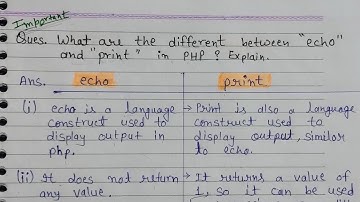 Important
Ques. What are the different between "echo"
and "print" in PHP ? Explain.
Ans. echo print
(i) echo is a language → Print is also a language
construct used to construct used to
display output in display output, similar
php. to echo.
(ii) It does not return → It returns a value of
any value. 1, so it can be used